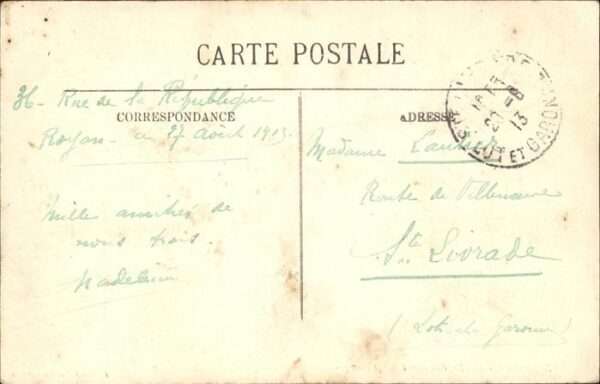 CARTE POSTALE
36 - Rue de la République
CORRESPONDANCE
Royan - a 27 août 1913.
Mille amitiés de
nous trois.
Madeleine
ADRESSE
Madame
Route de Villeneuve
Ste Livrade
(Lot et Garonne)
LOT ET GARONNE
27 -8
13